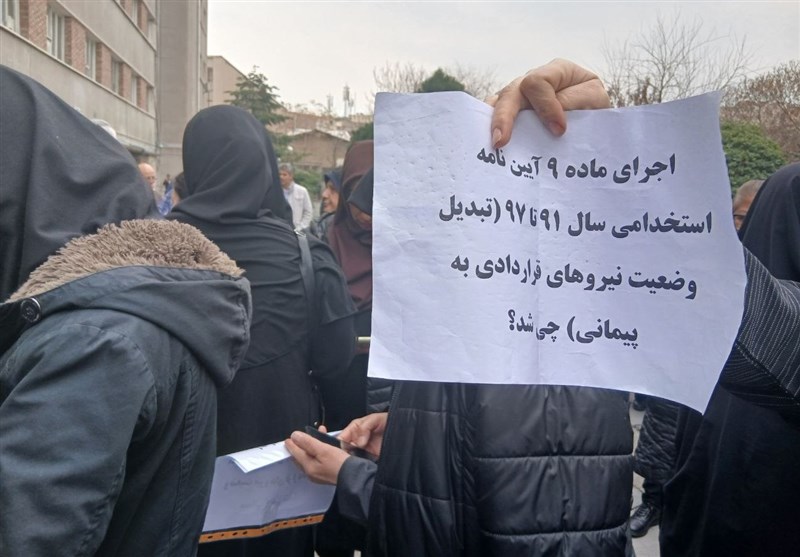 اجرای ماده ۹ آیین نامه
استخدامی سال ۹۱ تا ۹۷ (تبدیل
وضعیت نیروهای قراردادی به
پیمانی) چی شد؟